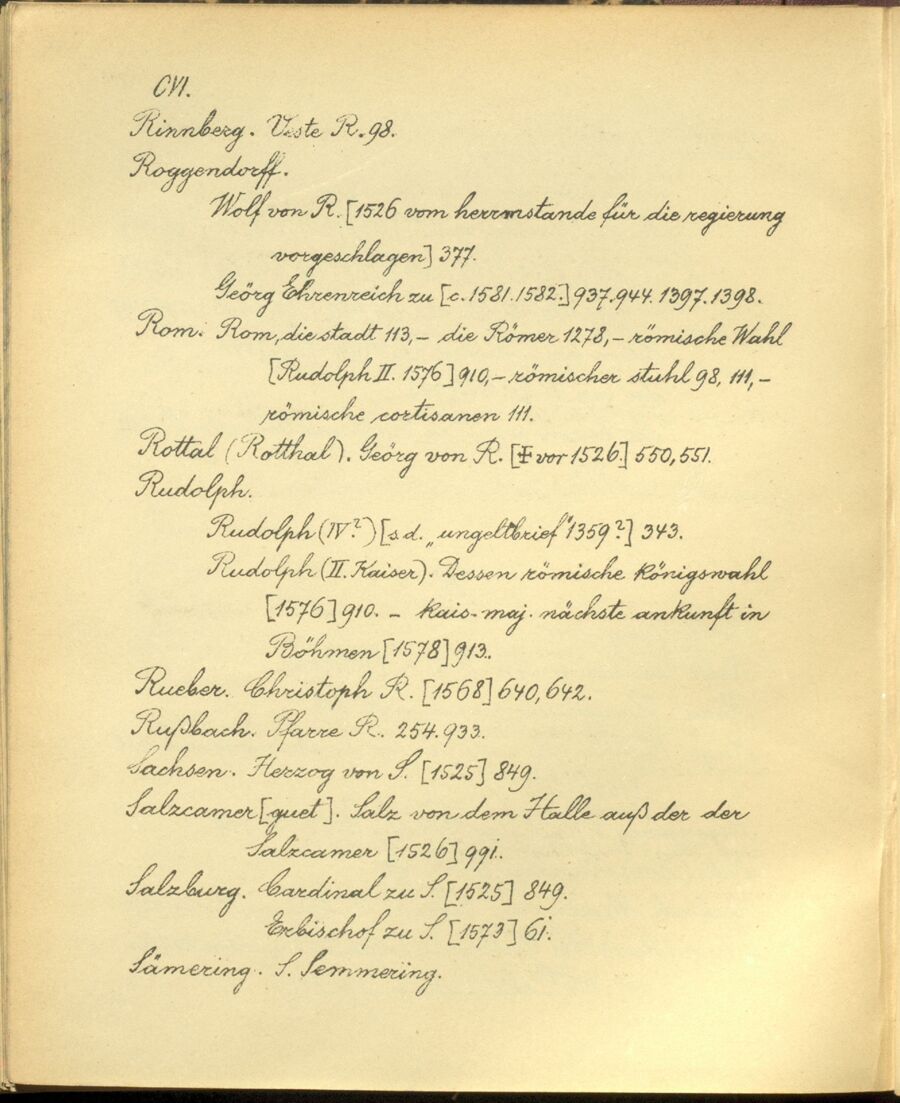 CVI.
Rinnberg. Veste R. 98.
Roggendorff.
Wolf von R. [1526 vom herrnstande für die regierung
vorgeschlagen] 377.
Geörg Ehrenreich zu [c. 1581.1582.] 937.944. 1397.1398.
Rom. Rom, die stadt 113,- die Römer 1278,- römische Wahl
[Rudolph II. 1576] 910,- römischer stuhl 98, 111,-
römische cortisanen 111.
Rottal (Rotthal). Geörg von R. [‡ vor 1526.] 550, 551.
Rudolph.
Rudolph (IV?) [s d. „ungeltbrief" 1359?] 343.
Rudolph (II. Kaiser). Dessen römische königswahl
[1576] 910. - kais-maj. nächste ankunft in
Böhmen [1578] 913.
Rueber. Christoph R. [1568] 640, 642.
Rußbach. Pfarre R. 254. 933.
Sachsen. Herzog von S. [1525] 849.
Salzcamer[guet]. Salz von dem Halle auß der der
Salzcamer [1526] 991.
Salzburg. Cardinal zu S. [1525] 849.
Erbischof zu S. [1573] 61.
Sämering. S. Semmering.